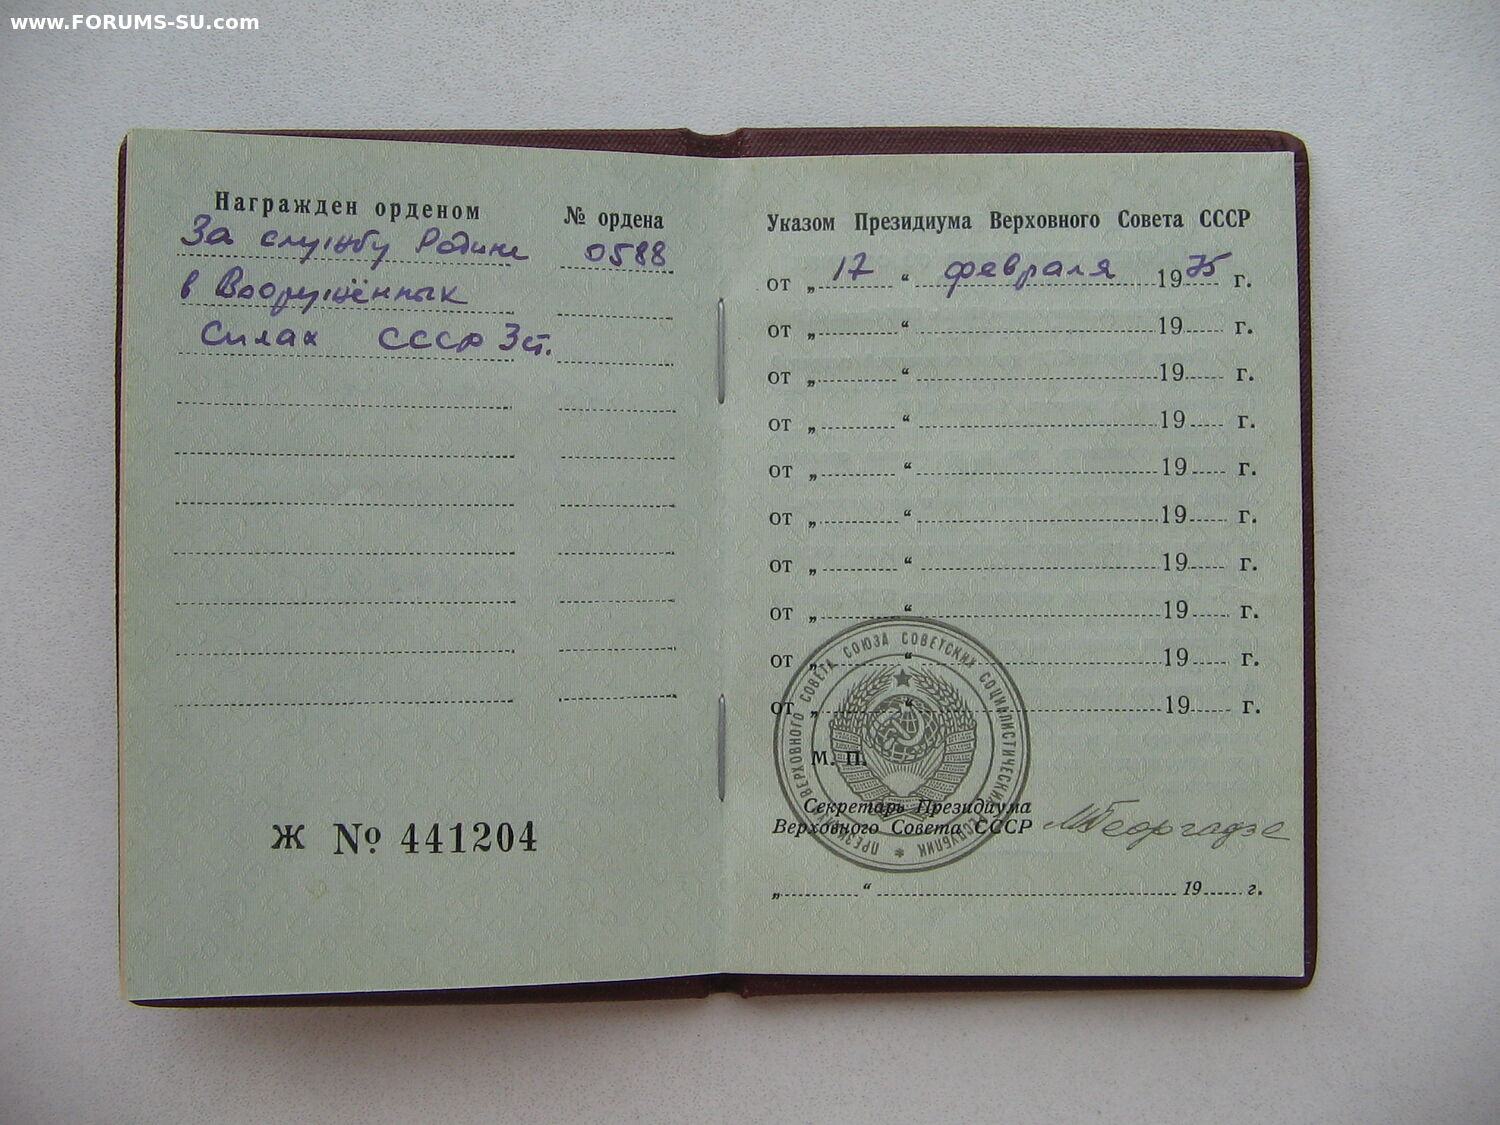 www.FORUMS-SU.com
Награжден орденом № ордена
За службу Родине 0588
в Вооружённых
Силах СССР 3 ст.
Ж № 441204
Указом Президиума Верховного Совета СССР
от „ 17 “ февраля 1975 г.
от „ “ 19 г.
от „ “ 19 г.
от „ “ 19 г.
от „ “ 19 г.
от „ “ 19 г.
от „ “ 19 г.
от „ “ 19 г.
от „ “ 19 г.
от „ “ 19 г.
ПРЕЗИДИУМ ВЕРХОВНОГО СОВЕТА СОЮЗА СОВЕТСКИХ СОЦИАЛИСТИЧЕСКИХ РЕСПУБЛИК
М. П.
Секретарь Президиума
Верховного Совета СССР МГеоргадзе
„ “ 19 г.